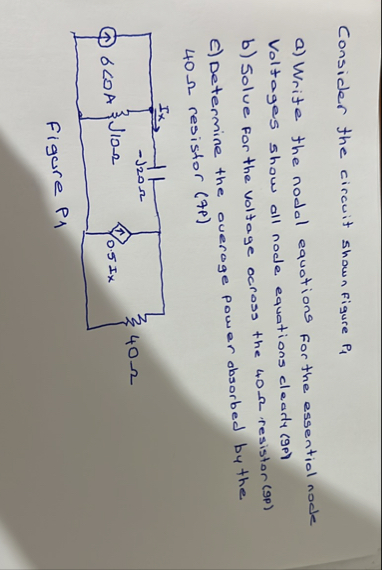 Consider the circuit shown Figure P1
a) Write the nodal equations for the essential node
Voltages show all node equations clearly (9P)
b) Solve for the voltage across the 40Ω resistor (9P)
c) Determine the average power absorbed by the
40Ω resistor (7P)
Ix
-J20Ω
6∠0A
J10Ω
0.5Ix
40Ω
Figure P1